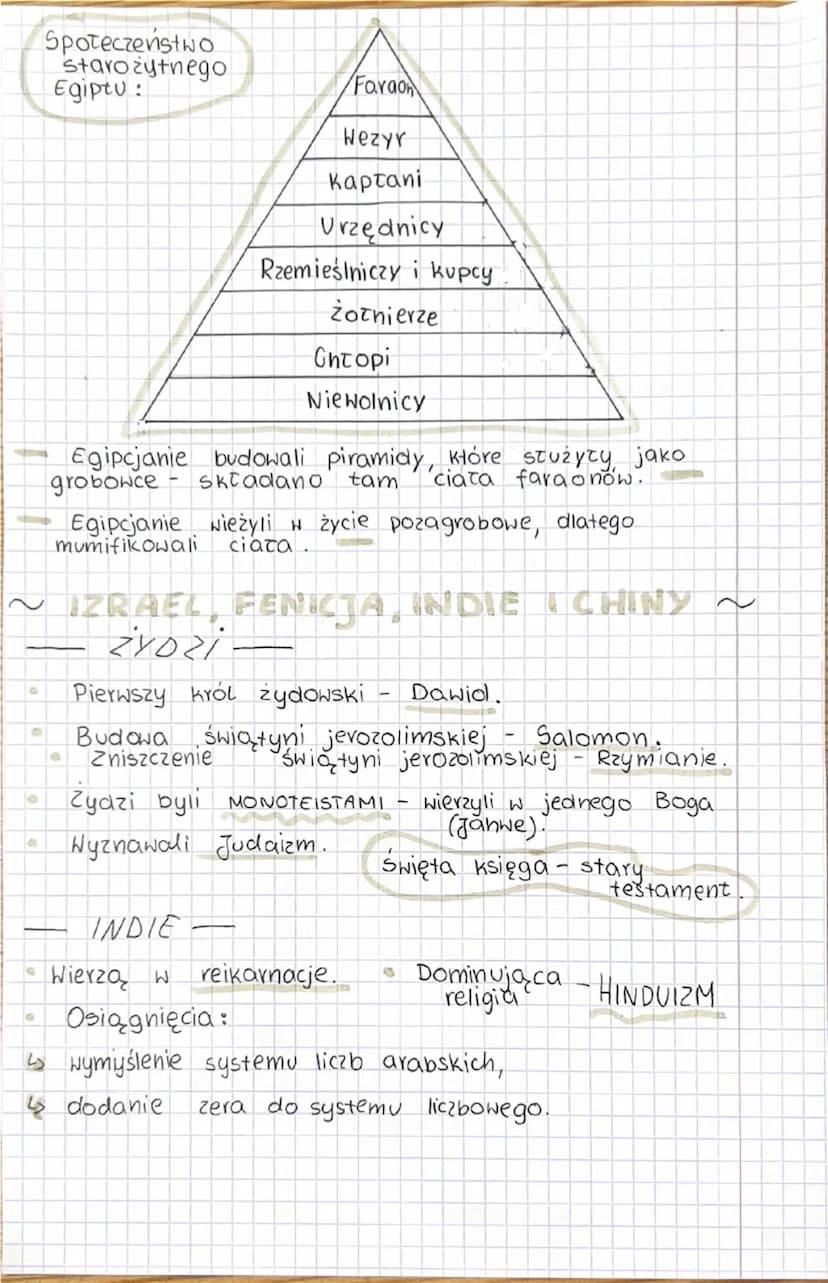 Społeczeństwo
starożytnego
Egiptu :
Faraon
Wezyr
Kapłani
Urzędnicy
Rzemieślniczy i kupcy
Żołnierze
Chłopi
Niewolnicy
Egipcjanie budowali piramidy, które służyły jako
grobowce - składano tam ciała faraonów.
Egipcjanie wieżyli w życie pozagrobowe, dlatego
mumifikowali ciała .
~ IZRAEL, FENICJA, INDIE I CHINY ~
— ŻYDZI —
• Pierwszy król żydowski - Dawid.
• Budowa świątyni jerozolimskiej - Salomon.
• Zniszczenie świątyni jerozolimskiej - Rzymianie.
• Żydzi byli MONOTEISTAMI - wierzyli w jednego Boga
(Jahwe).
• Wyznawali Judaizm.
Święta księga - stary
testament.
— INDIE —
• Wierzą w reikarnacje.
• Dominująca religia - HINDUIZM
• Osiągnięcia :
↳ wymyślenie systemu liczb arabskich,
↳ dodanie zera do systemu liczbowego.